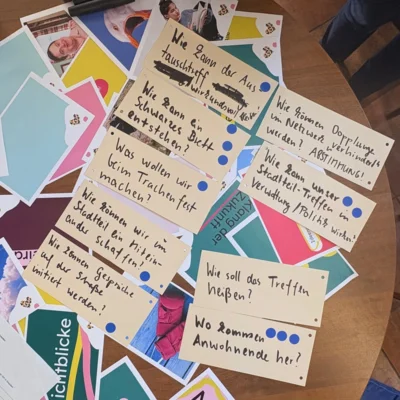 Wie kann der Aus
tauschtreff
wirkungsvoll
Wie kann ein
Schwarzes Brett
entstehen?
Was wollen wir
beim Trachenfest
machen?
Wie können wir im
Stadtteil ein Mitein-
ander schaffen?
Wie können Gespräche
auf der Straße
initiiert werden?
Wie können Dopplungen
im Netzwerk verhindert
werden? ABSTIMMUNG!
Wie kann unser
Stadtteil-Treffen in
Verwaltung/Politik wirken?
Wie soll das Treffen
heißen?
Wo kommen
Anwohnende her?
lang der
Zukunft
ichtblicke